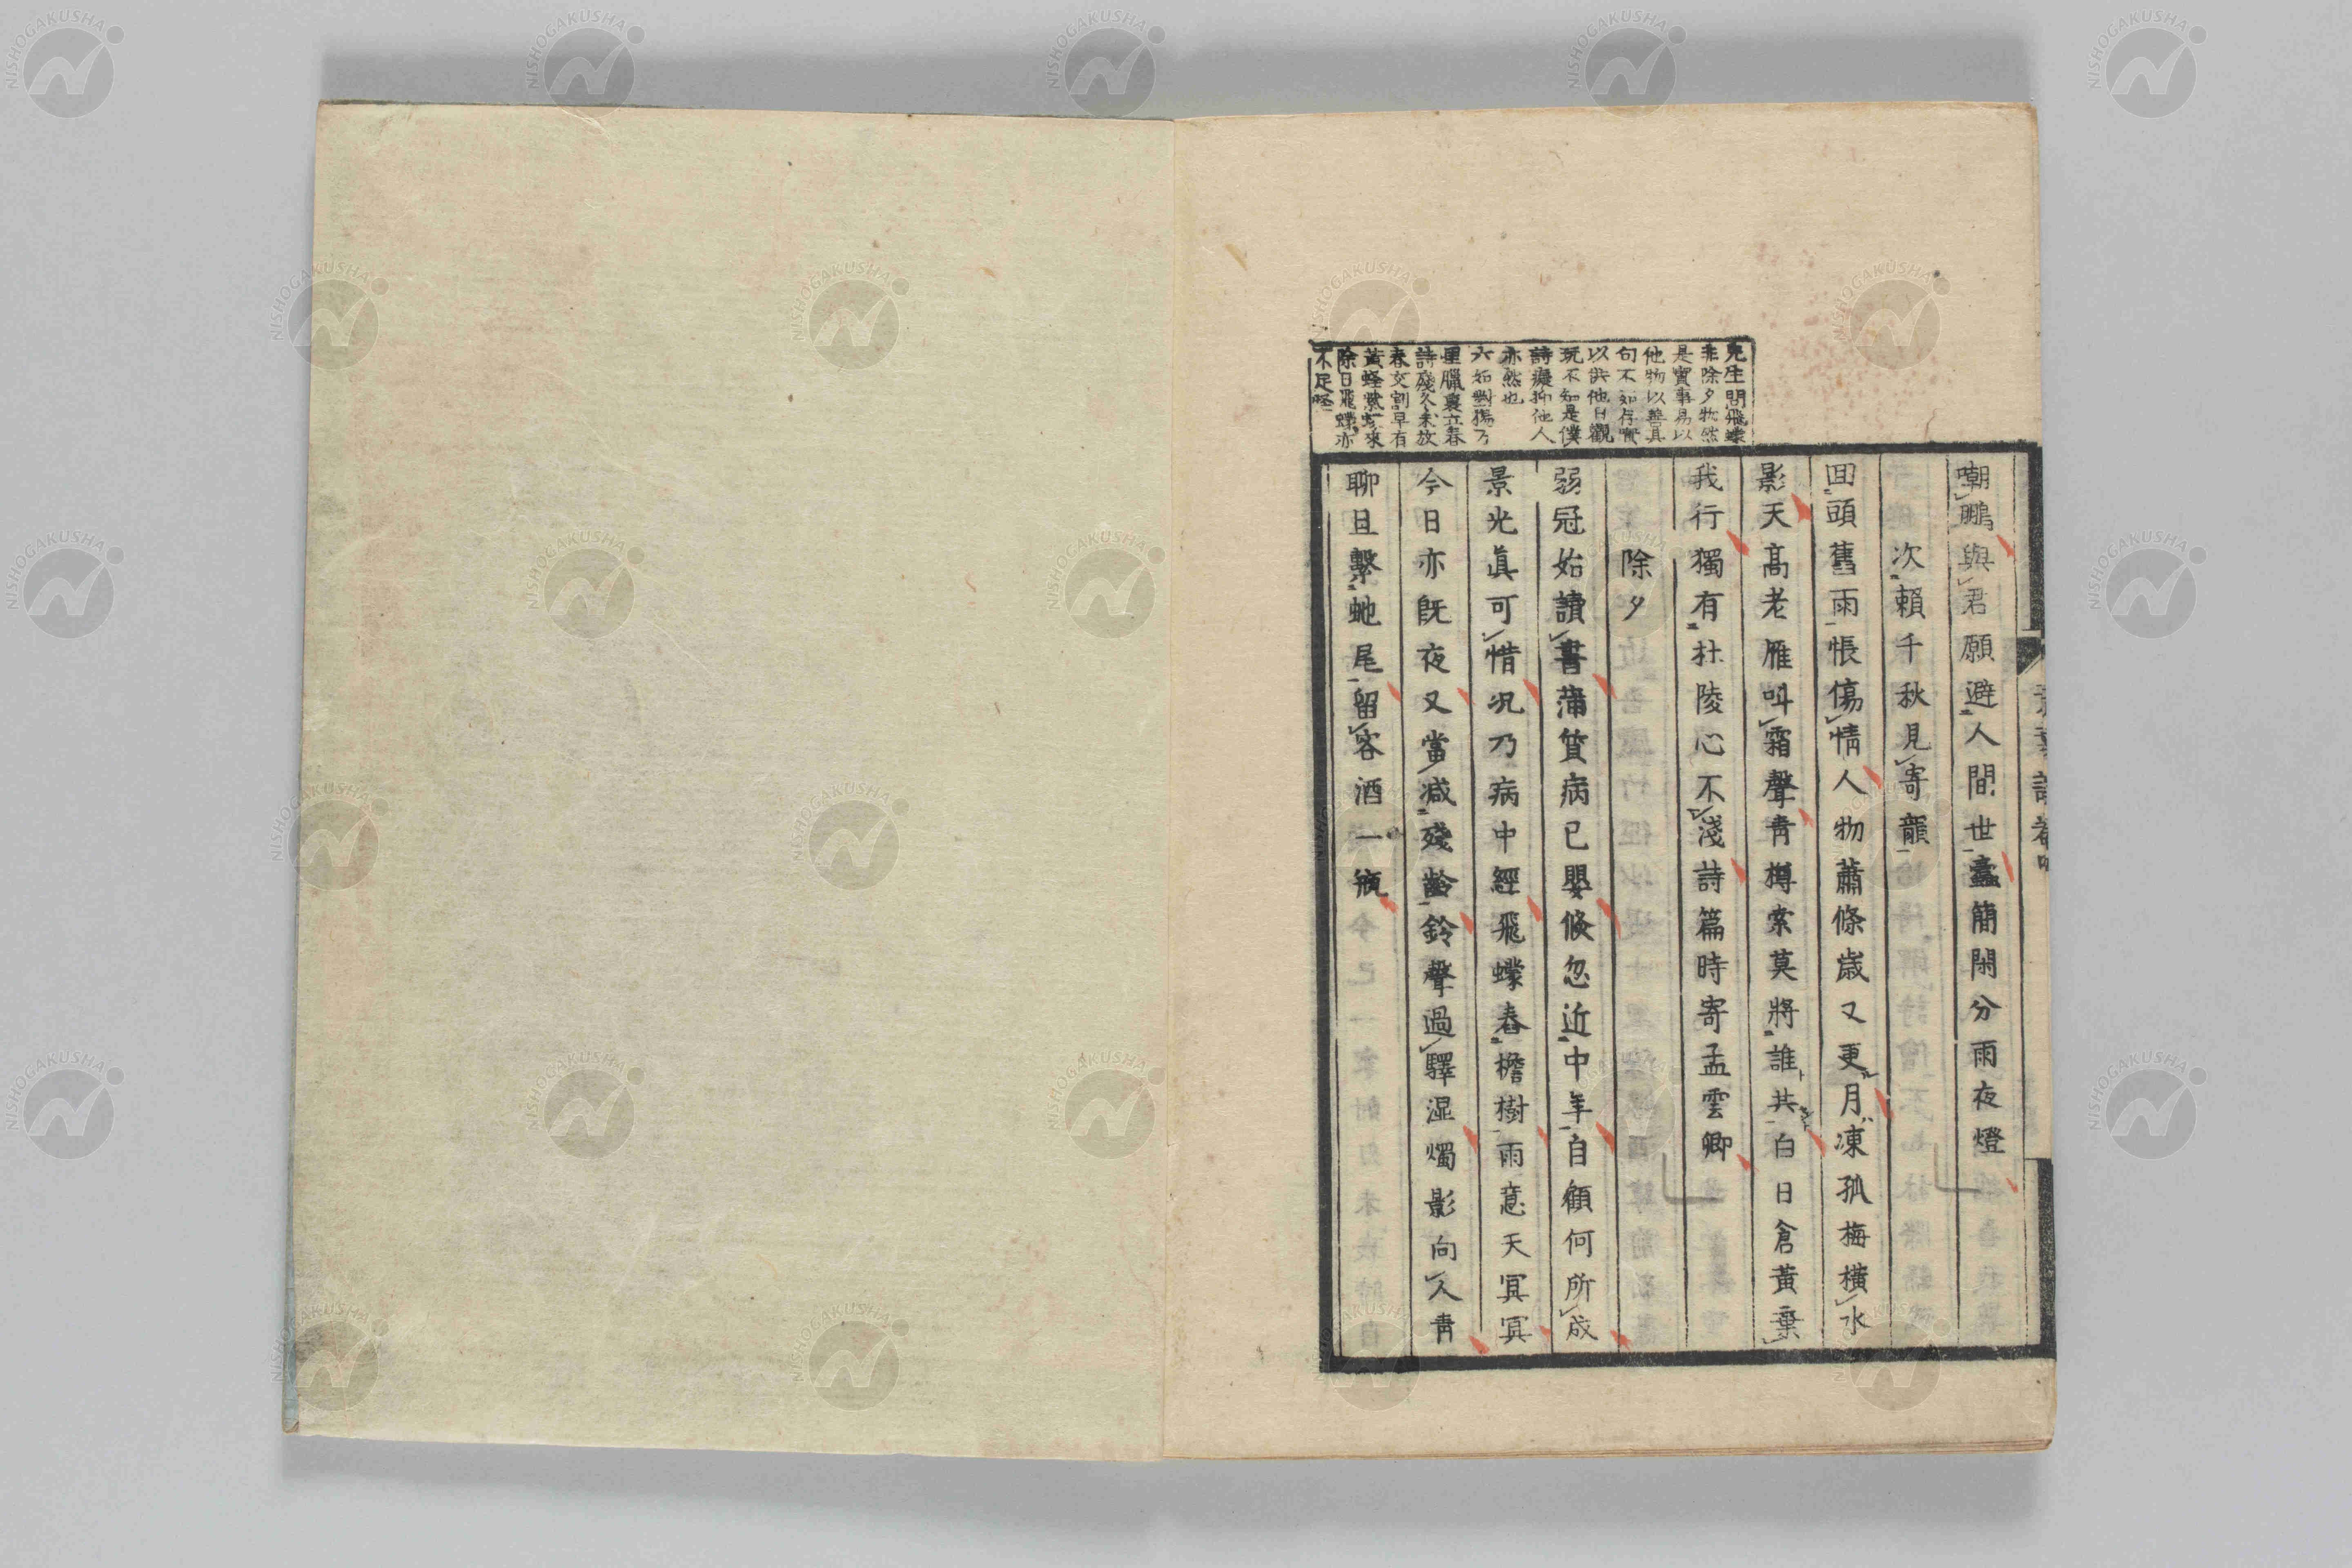 先生問飛蠓
非除夕物然
是實事易以
他物以善其
句不如存實
以供他日觀
玩不知是僕
詩癡抑他人
亦然也
六如對楊乃
里臘裏立春
詩殘冬未放
春交割早有
黃蜂紫蝶來
除日飛蠓亦
不足怪
嘲鵬與君願避人間世蠧簡閑分雨夜燈
次賴千秋見寄韻
囬頭舊雨悵傷情人物蕭條歳又更月凍孤梅橫水
影天高老雁叫霜聲靑樽索莫將誰共白日倉黃棄
我行獨有杜陵心不淺詩篇時寄孟雲卿
除夕
弱冠始讀書蒲質病已嬰倏忽近中年自顧何所成
景光眞可惜况乃病中經飛蠓舂檐樹雨意天冥冥
今日亦旣夜又當减殘齡鈴聲過驛湿燭影向人靑
聊且繫虵尾留客酒一瓶
NISHOGAKUSHA